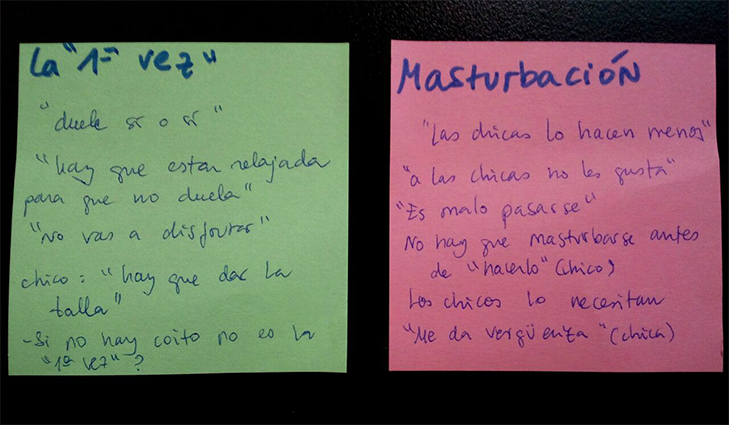 La "1ª vez"
"duele si o si"
"hay que estar relajada
para que no duela"
"No vas a disfrutar"
chico: "hay que dar la
talla"
-Si no hay coito no es la
"1ª vez"?
Masturbación
"Las chicas lo hacen menos"
"a las chicas no les gusta"
"Es malo pasarse"
No hay que masturbarse antes
de "hacerlo" (chico)
Los chicos lo necesitan
"Me da vergüenza" (chica)